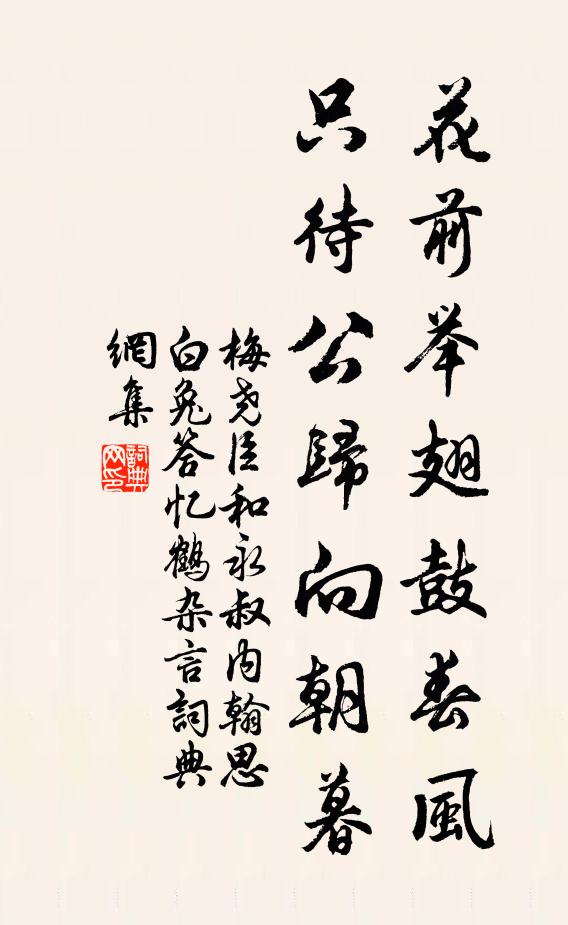 花前举翅鼓春風
只待公歸向朝暮
梅尧臣和永叔内翰思
白兔答忆鶴杂言詞典
網集
詞典
网印